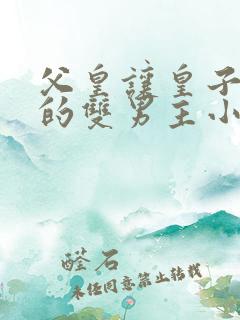 父皇讓皇子
的雙男主小
醛石
未经同意禁止转载